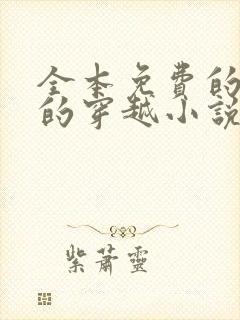 全本免費的
的穿越小說
紫蕭靈